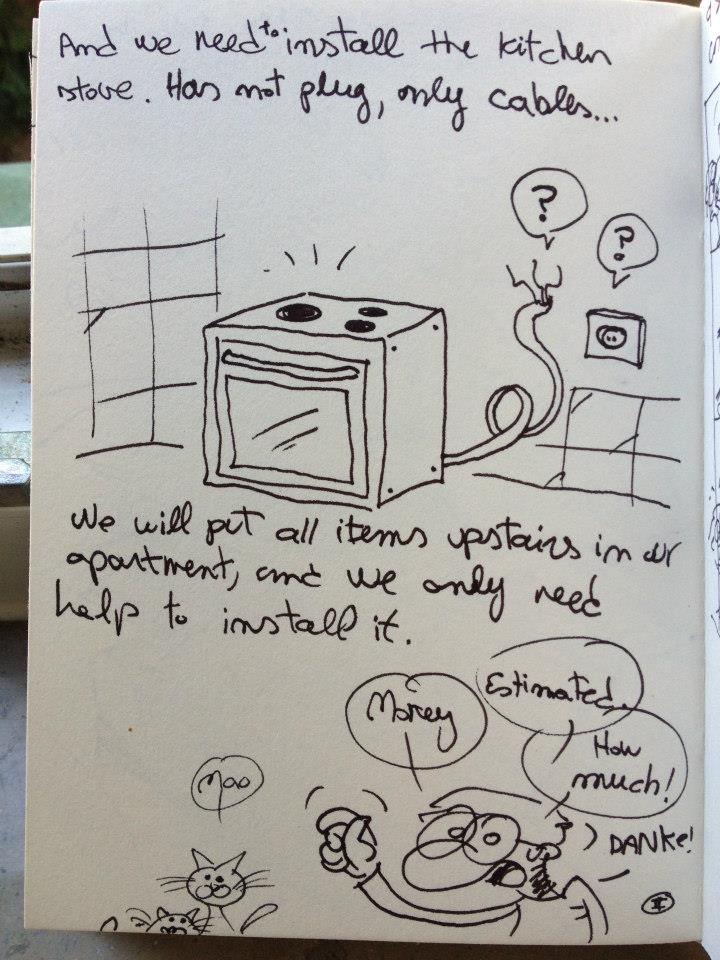 And we need to install the kitchen
stove. Has not plug, only cables...
?
?
We will put all items upstairs in our
apartment, and we only need
help to install it.
Estimated.
Money
How
much!
Mao
DANKE!
II